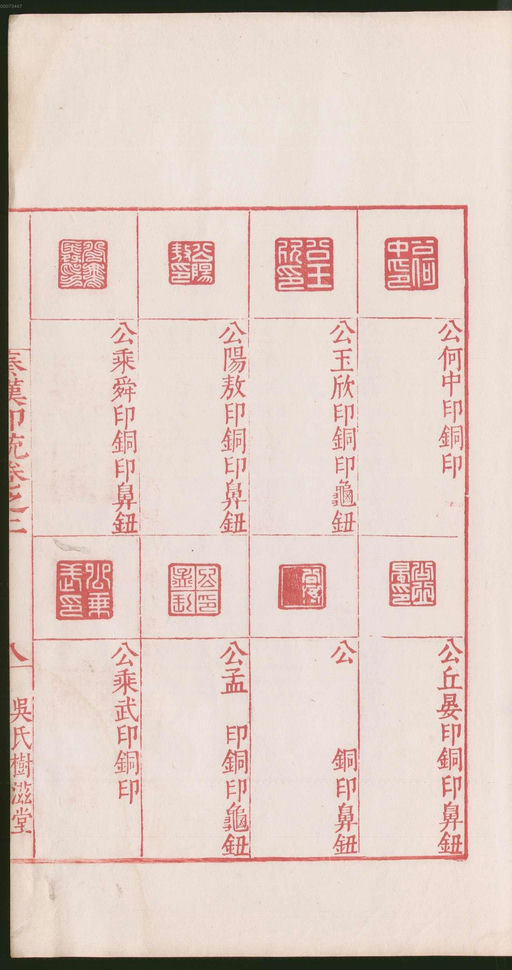 公何中印銅印
公玉欣印銅印龜鈕
公陽敖印銅印鼻鈕
公乘舜印銅印鼻鈕
公丘晏印銅印鼻鈕
公　　銅印鼻鈕
公孟　印銅印龜鈕
公乘武印銅印
秦漢印統卷之三
八
吳氏樹滋堂
00073447